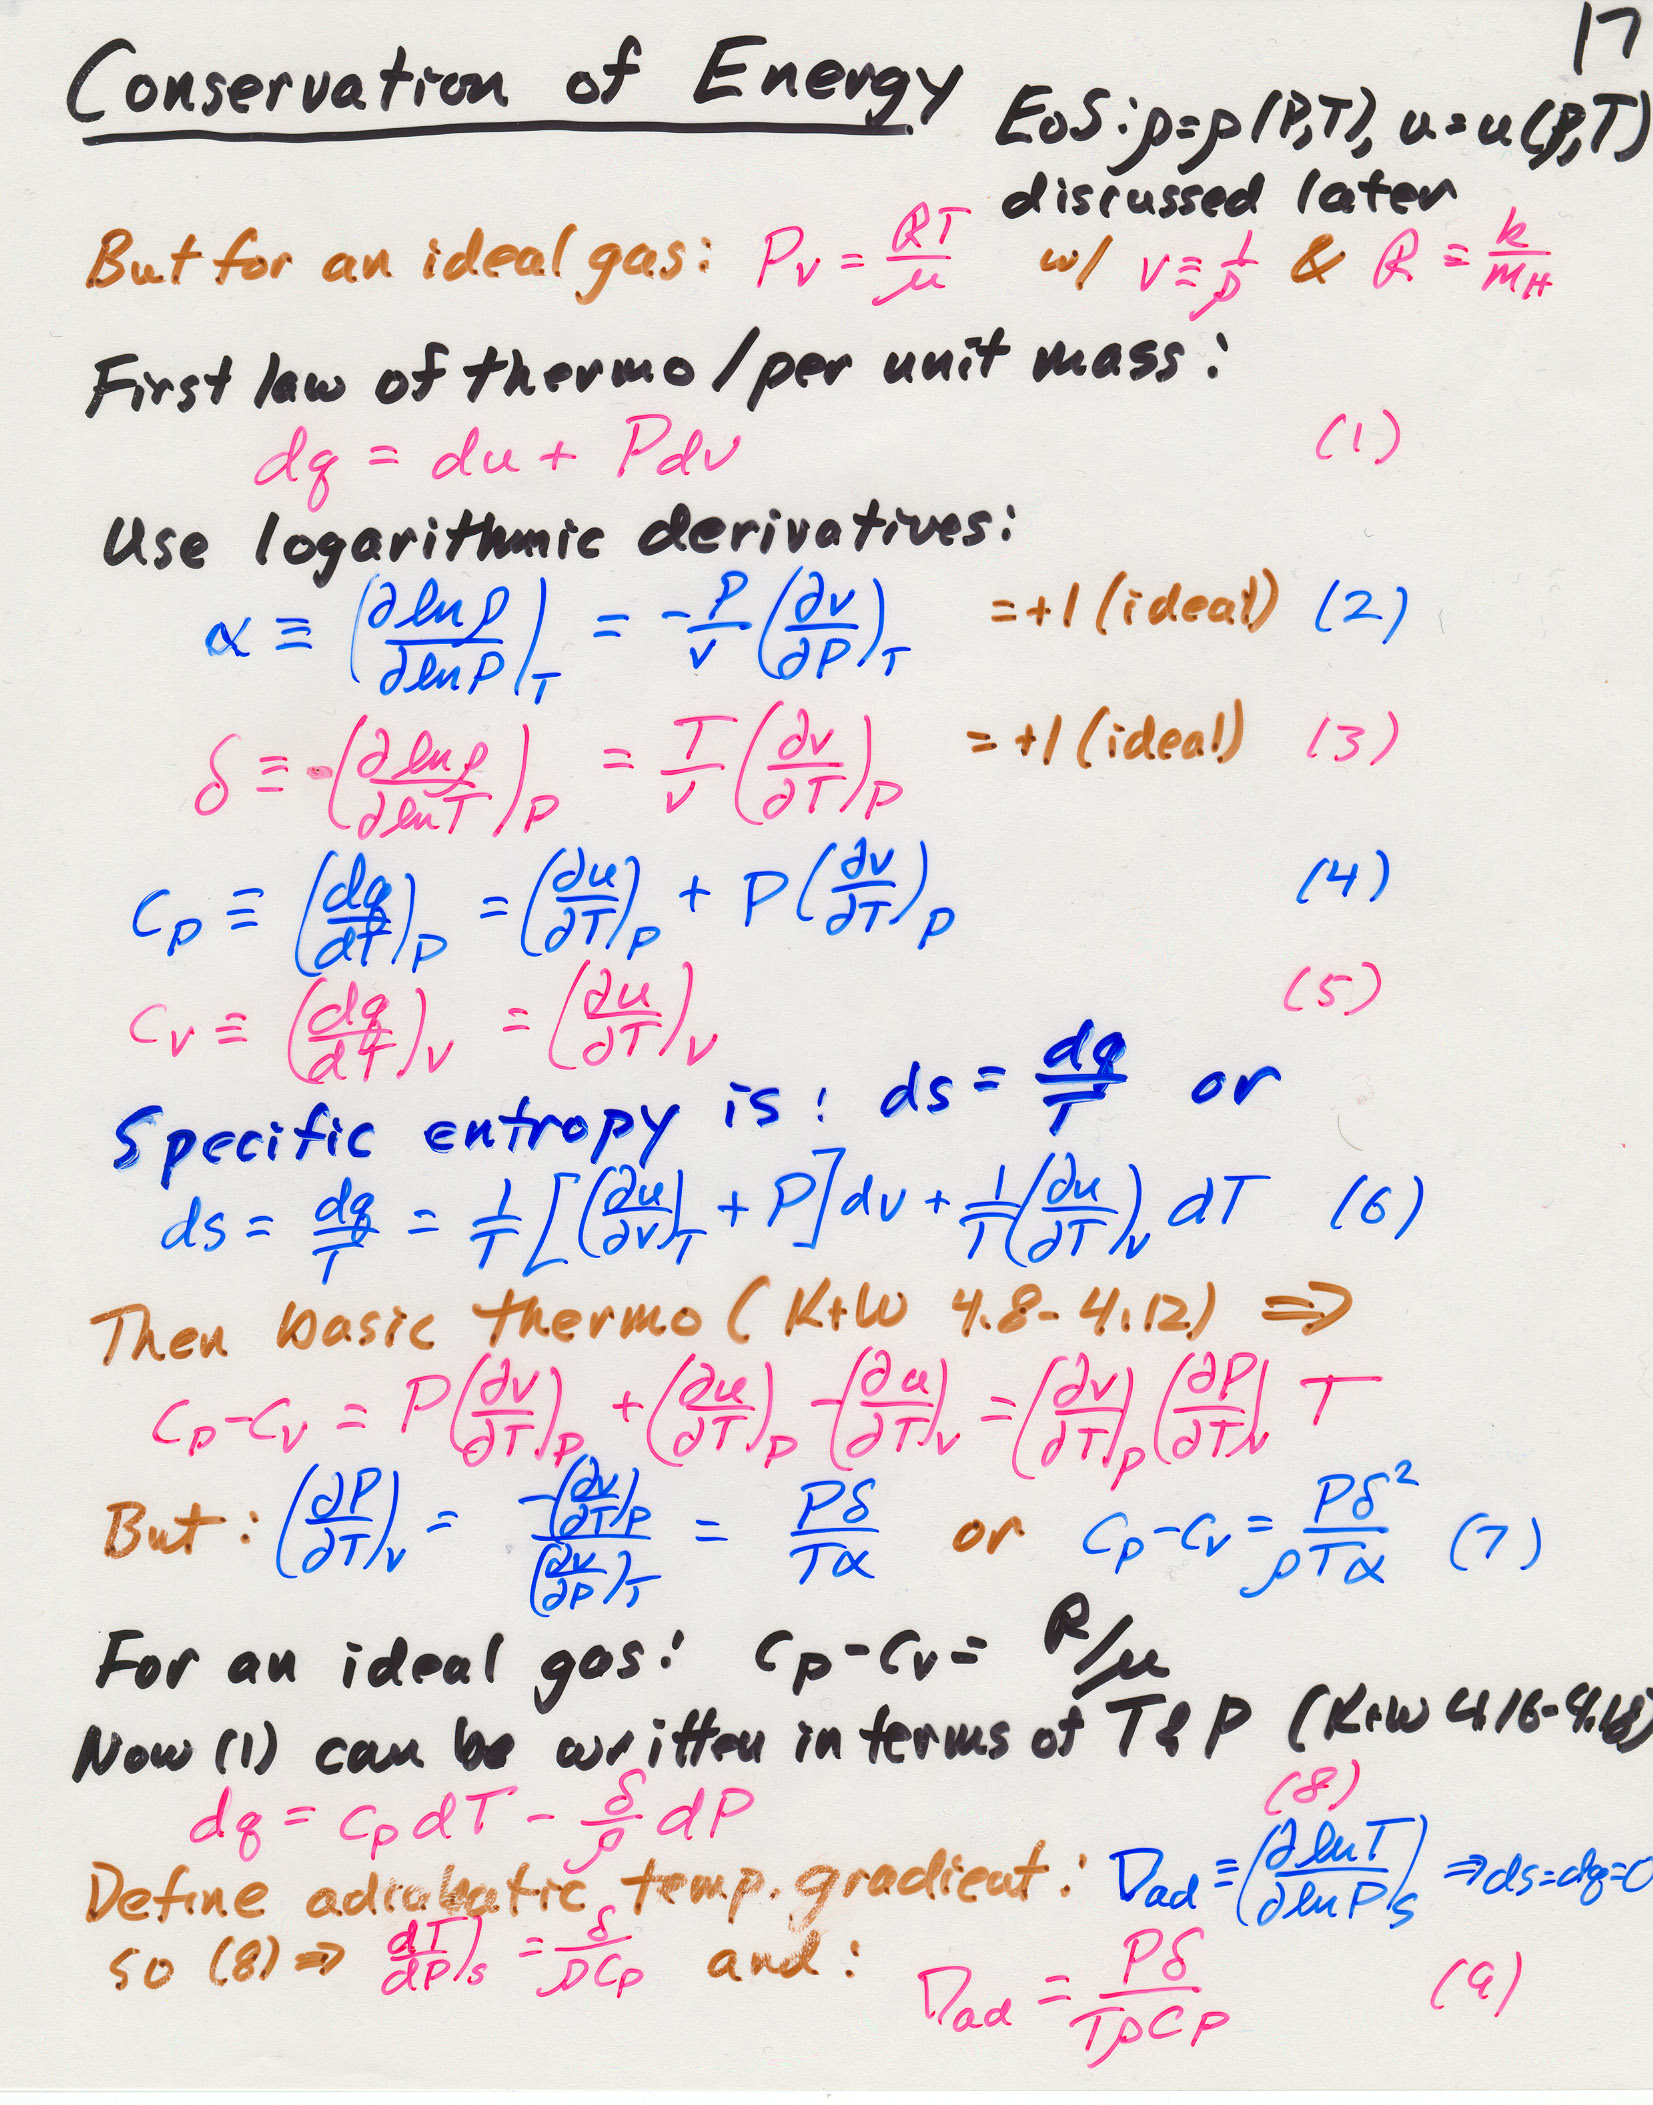 17
Conservation of Energy
EoS: ρ=ρ(P,T), u=u(ρ,T)
discussed later
But for an ideal gas: Pv = ℛT/μ w/ v ≡ 1/ρ & ℛ = k/m_H
First law of thermo/per unit mass:
dq = du + Pdv (1)
Use logarithmic derivatives:
α ≡ (∂lnρ/∂lnP)_T = -P/v (∂v/∂P)_T = +1 (ideal) (2)
δ ≡ -(∂lnρ/∂lnT)_P = T/v (∂v/∂T)_P = +1 (ideal) (3)
c_P ≡ (dq/dT)_P = (∂u/∂T)_P + P(∂v/∂T)_P (4)
c_v ≡ (dq/dT)_v = (∂u/∂T)_v (5)
Specific entropy is: ds = dq/T or
ds = dq/T = 1/T [(∂u/∂v)_T + P] dv + 1/T (∂u/∂T)_v dT (6)
Then basic thermo (K+W 4.8-4.12) ⇒
c_P-c_v = P(∂v/∂T)_P + (∂u/∂T)_P - (∂u/∂T)_v = (∂v/∂T)_P (∂P/∂T)_v T
But: (∂P/∂T)_v = -(∂v/∂T)_P / (∂v/∂P)_T = Pδ/Tα or c_P-c_v = Pδ²/ρTα (7)
For an ideal gas: c_P-c_v = ℛ/μ
Now (1) can be written in terms of T & P (K+W 4.16-4.18)
dq = c_P dT - δ/ρ dP (8)
Define adiabatic temp. gradient: ∇_ad ≡ (∂lnT/∂lnP)_s ⇒ ds=dq=0
so (8) ⇒ dT/dP)_s = δ/ρc_P and:
∇_ad = Pδ/Tρc_P (9)